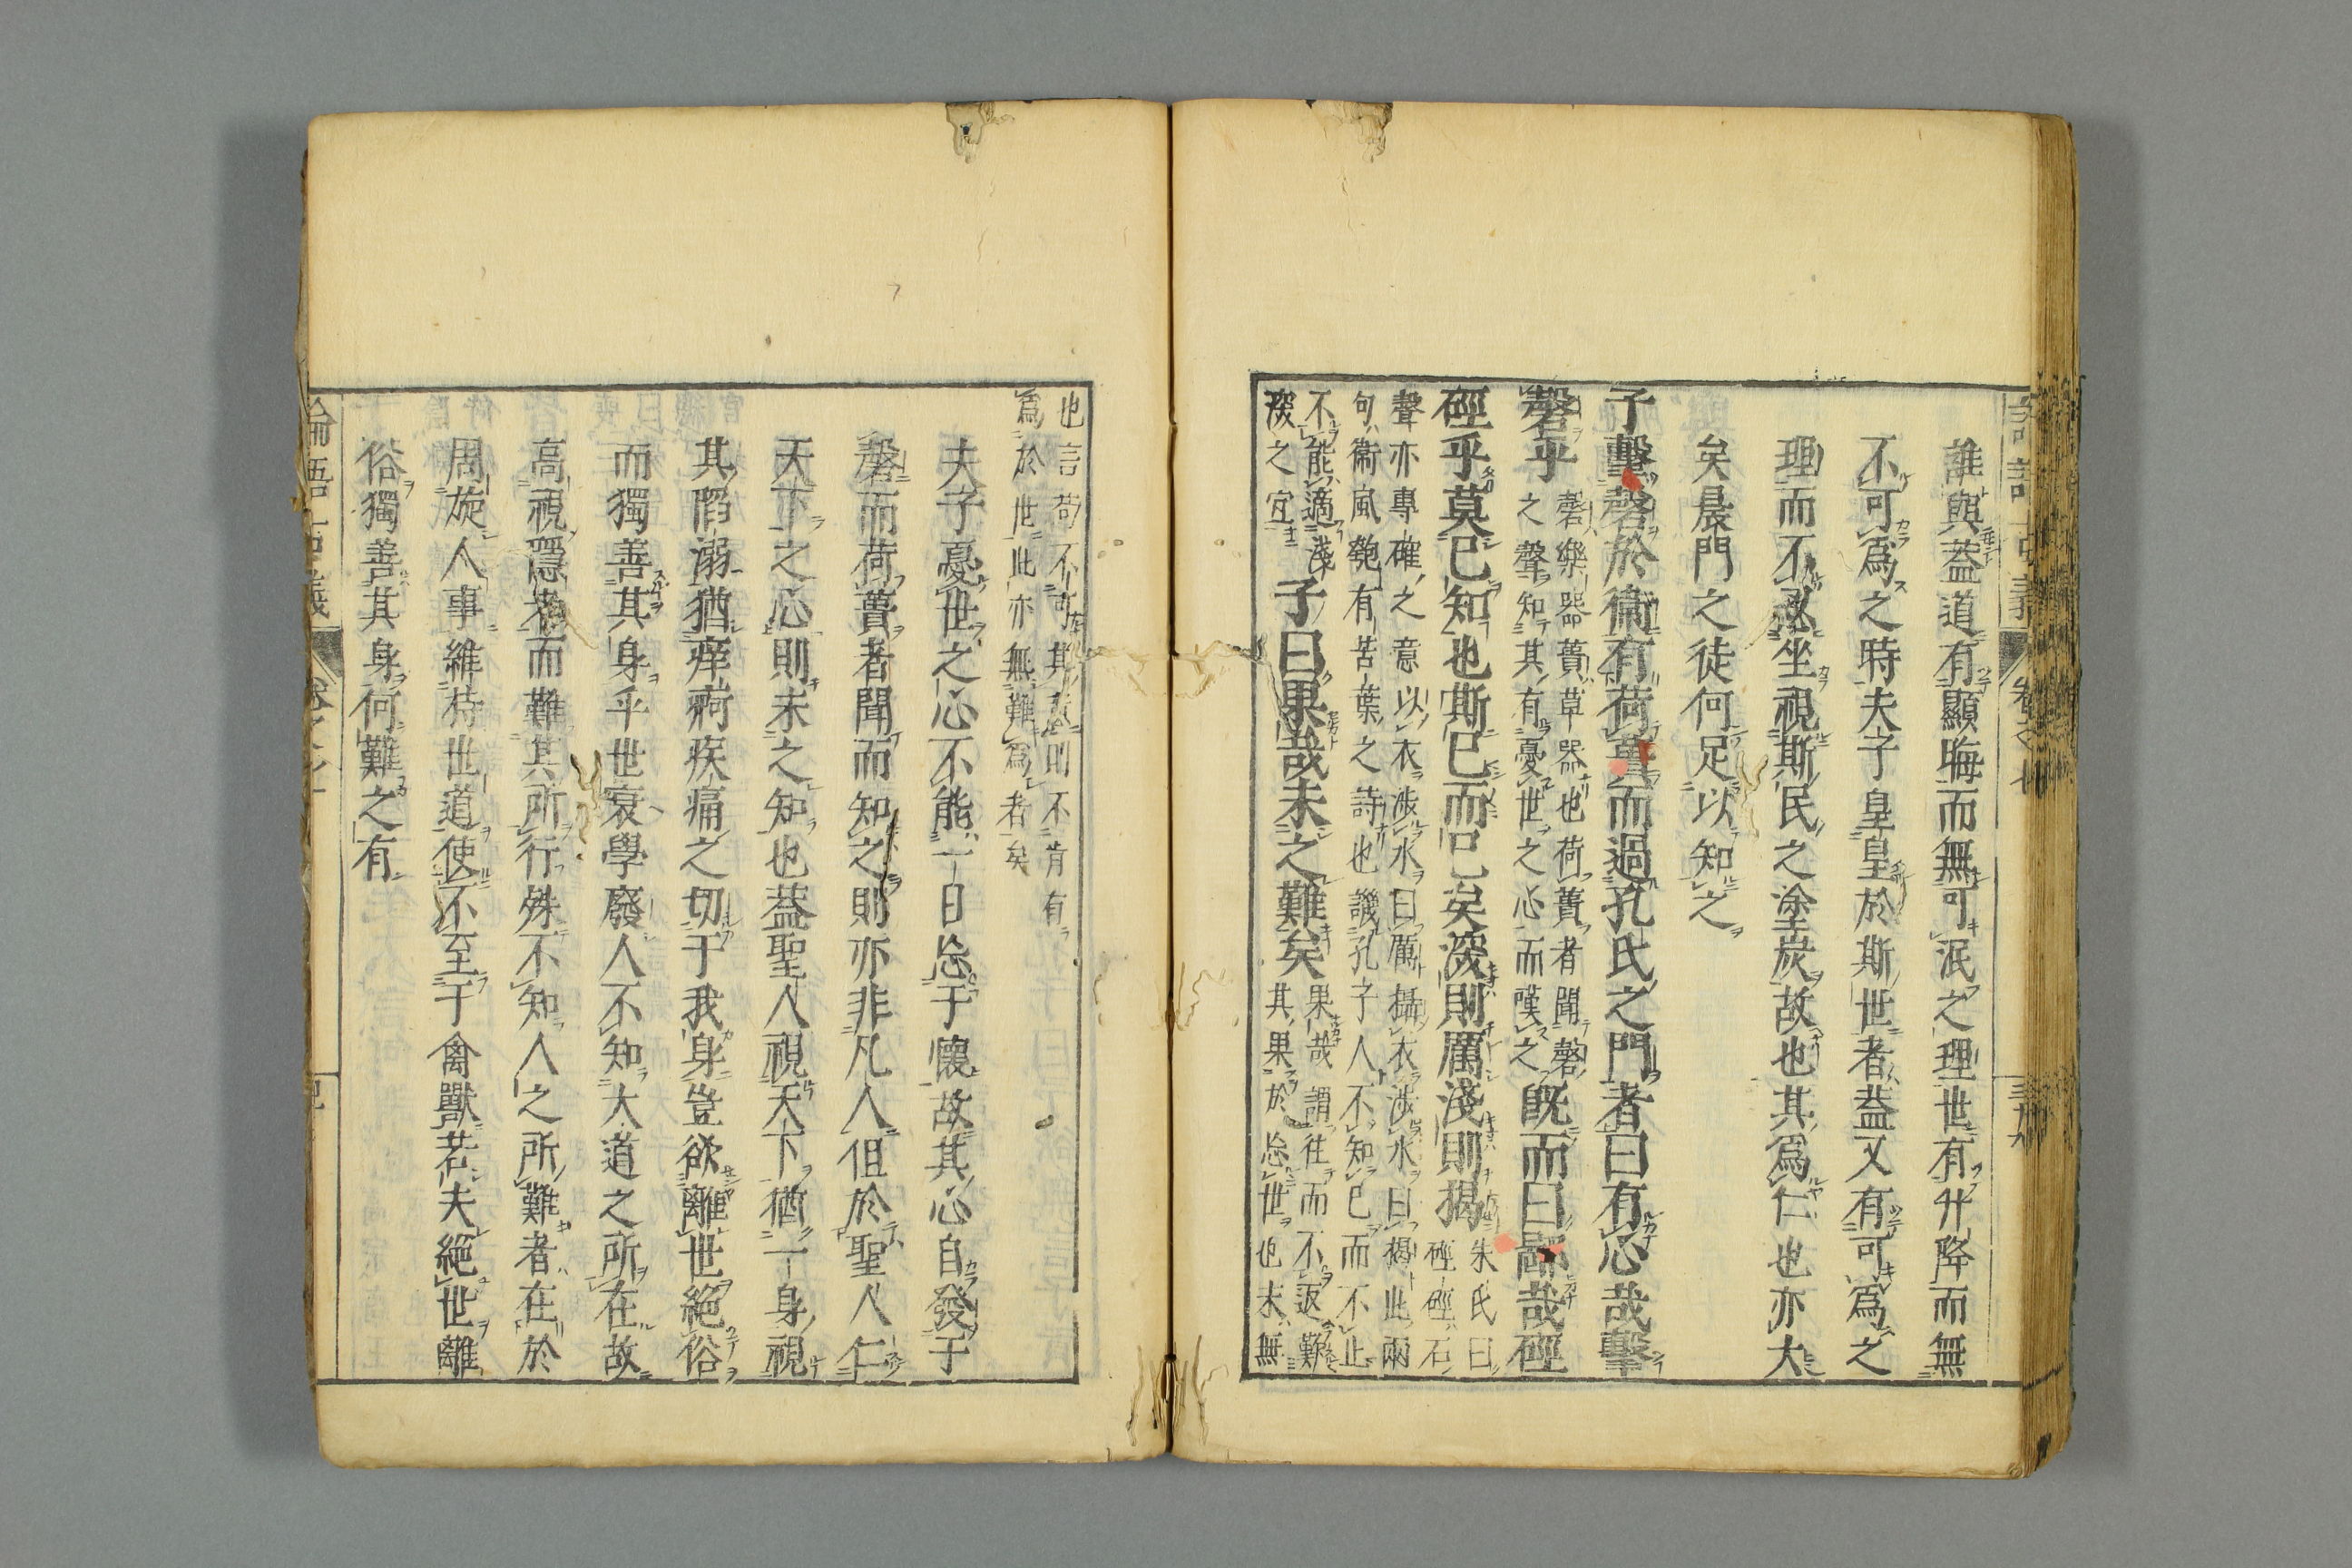 誰與蓋道有顯晦而無可泯之理世有升降而無
不可爲之時夫子皇皇於斯世者蓋又有可爲之
理而不忍坐視斯民之塗炭故也其爲仁也亦大
矣晨門之徒何足以知之
子擊磬於衞有荷蕢而過孔氏之門者曰有心哉擊
磬乎
磬樂器蕢草器也荷蕢者聞磬
之聲知其有憂世之心而嘆之
既而曰鄙哉硜
硜乎莫己知也斯已而已矣深則厲淺則揭
朱氏曰
硜硜石
聲亦專確之意以衣渉水曰厲攝衣渉水曰揭此兩
句衞風匏有苦葉之詩也譏孔子人不知已而不止
不能適淺
深之宜
子曰果哉末之難矣
果哉謂往而不返難
其果於忘世也末無
也言苟不可其意則不肯有
爲於世此亦無難爲者矣
夫子憂世之心不能一日忘于懷故其心自發于
磬而荷蕢者聞而知之則亦非凡人但於聖人仁
天下之心則未之知也蓋聖人視天下猶一身視
其陷溺猶痒痾疾痛之切于我身豈欲離世絶俗
而獨善其身乎世衰學廢人不知大道之所在故
高視隱者而難其所行殊不知人之所難者在於
周旋人事維持世道使不至于禽獸若夫絶世離
俗獨善其身何難之有
論語古義 卷之七